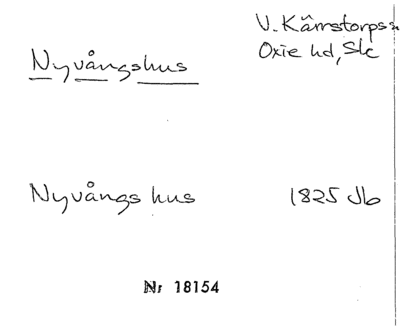 Nyvångshus
V. Kärrstorps sn
Oxie hd, Sk
Nyvångs hus 1825 Jb
Nr 18154